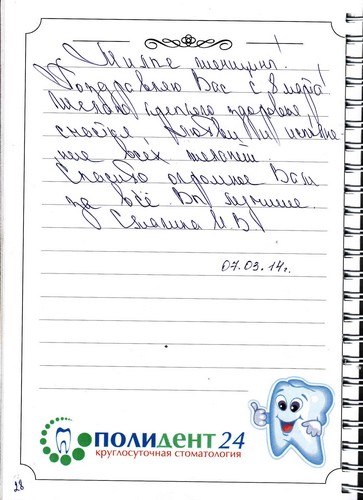 Милые женщины!
Поздравляю Вас с 8 марта!
Желаю крепкого здоровья
счастья, любви и исполне-
ния всех желаний.
Спасибо огромное Вам
за всё. Вы лучшие.
М.В.
07.03.14г.
ПОЛИДЕНТ 24
круглосуточная стоматология
28